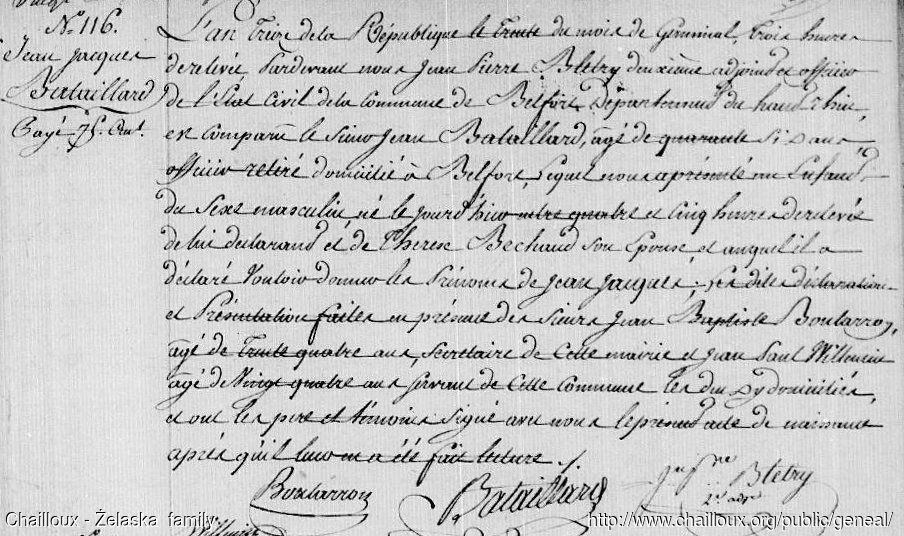 N.° 116.
Jean Jacques
Bataillard
Payé 75 Cent.
L'an Treize de la République le Trente du mois de Germinal, trois heures
de relevée, Pardevant nous Jean Pierre Bletry deuxieme adjoint et officier
de l'Etat Civil de la Commune de Belfort Département du haut Rhin,
est comparu le Sieur Jean Bataillard, âgé de quarante Six ans
officier retiré domicilié à Belfort, lequel nous a présenté un Enfant
du Sexe masculin né le jour d'hier entre quatre et Cinq heures de relevée
de lui declarant et de Therese Bechaud son Epouse, et auquel il a
déclaré Vouloir donner les Prénoms de Jean Jacques; les dites déclaration
et Présentation faites en présence des sieurs Jean Baptiste Boutarron,
âgé de trente quatre ans, secretaire de Cette mairie et Jean Paul Willemin
âgé de Vingt quatre ans servant de Cette Commune les deux y domiciliés,
et ont les pere et témoins signé avec nous le présent acte de naissance
après qu'il leur en a été fait lecture ./.
Boutarron Bataillard Jn Pre Bletry
2e adjt
Willemin
Chailloux - Żelaska family
http://www.chailloux.org/public/geneal/